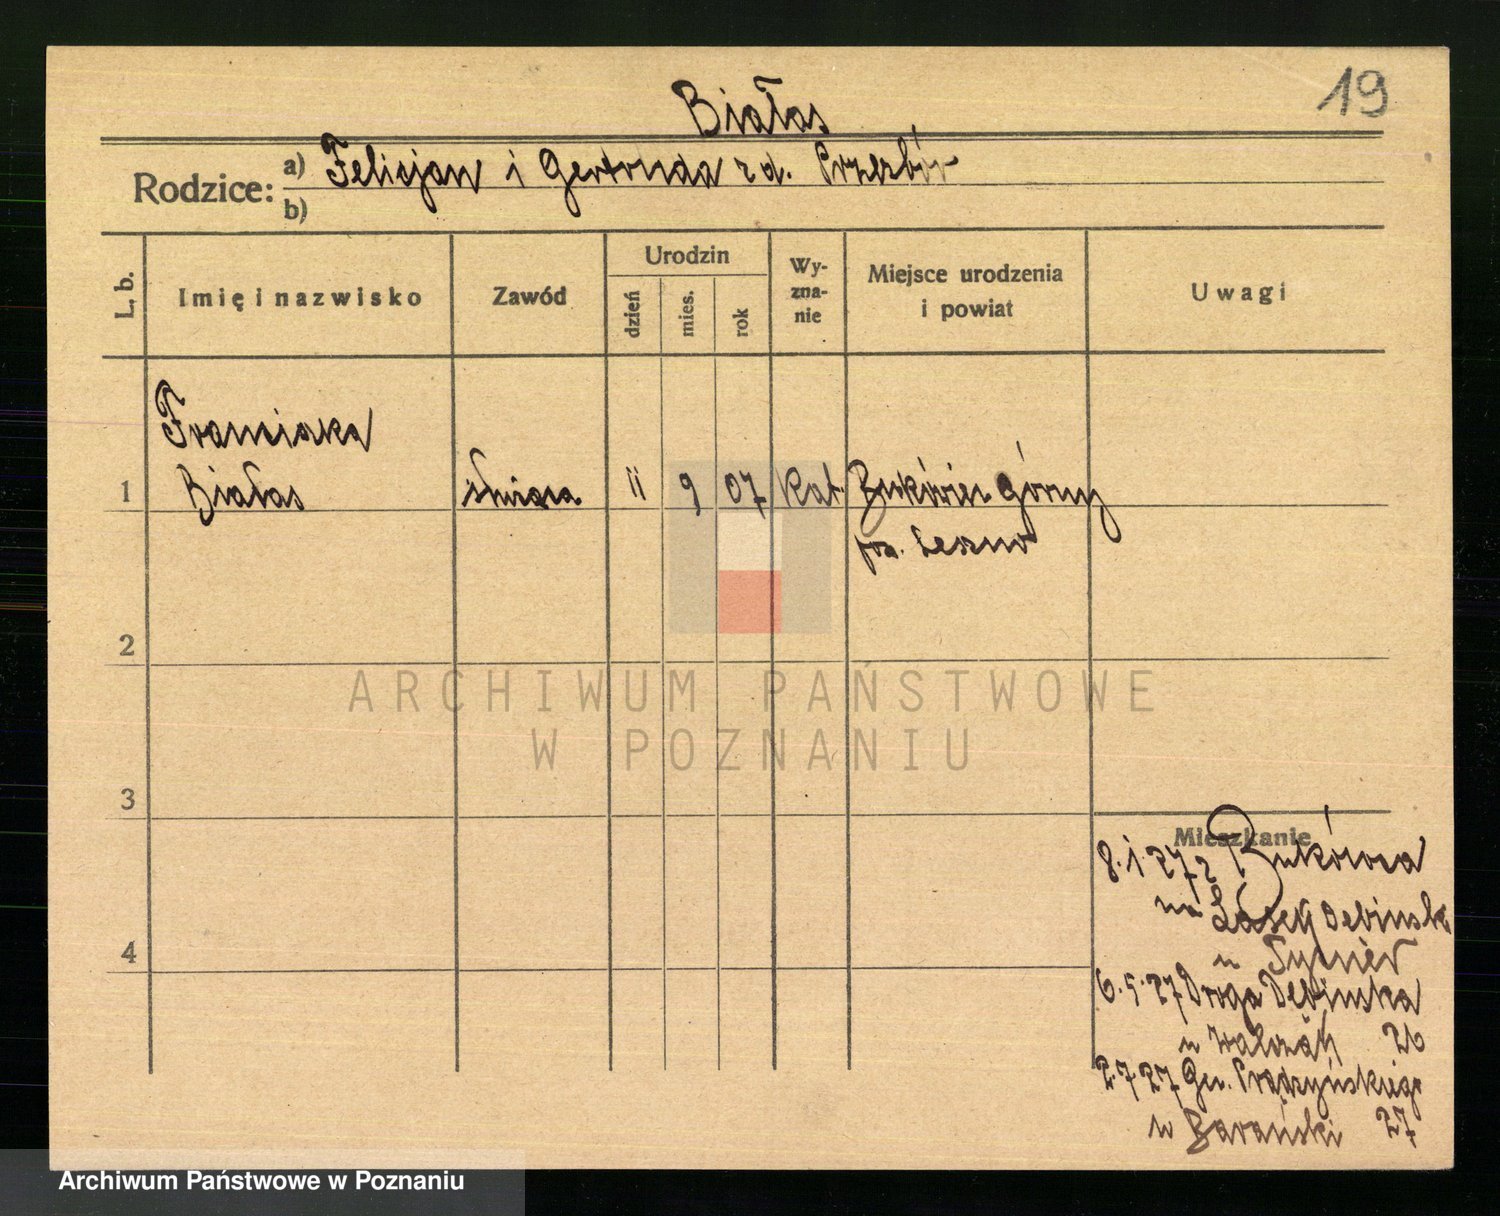 19
Białas
Rodzice: a) Felicjan i Gertruda zd. Przezbór
b)
L. b. Imię i nazwisko Zawód Urodzin dzień mies. rok Wy-zna-nie Miejsce urodzenia i powiat Uwagi
Franciszka
1 Białas służąca 11 9 07 kat. Bukówiec Górny
pow. Leszno
2
ARCHIWUM PAŃSTWOWE
W POZNANIU
3
Mieszkanie
8.1.27 z Bukówca
na Lasek Dębińsk
u
6.5.27 Droga Dębińska
u Walczak 26
2.7.27 Gen. Prądzyńskiego
u Barański 27
4
Archiwum Państwowe w Poznaniu